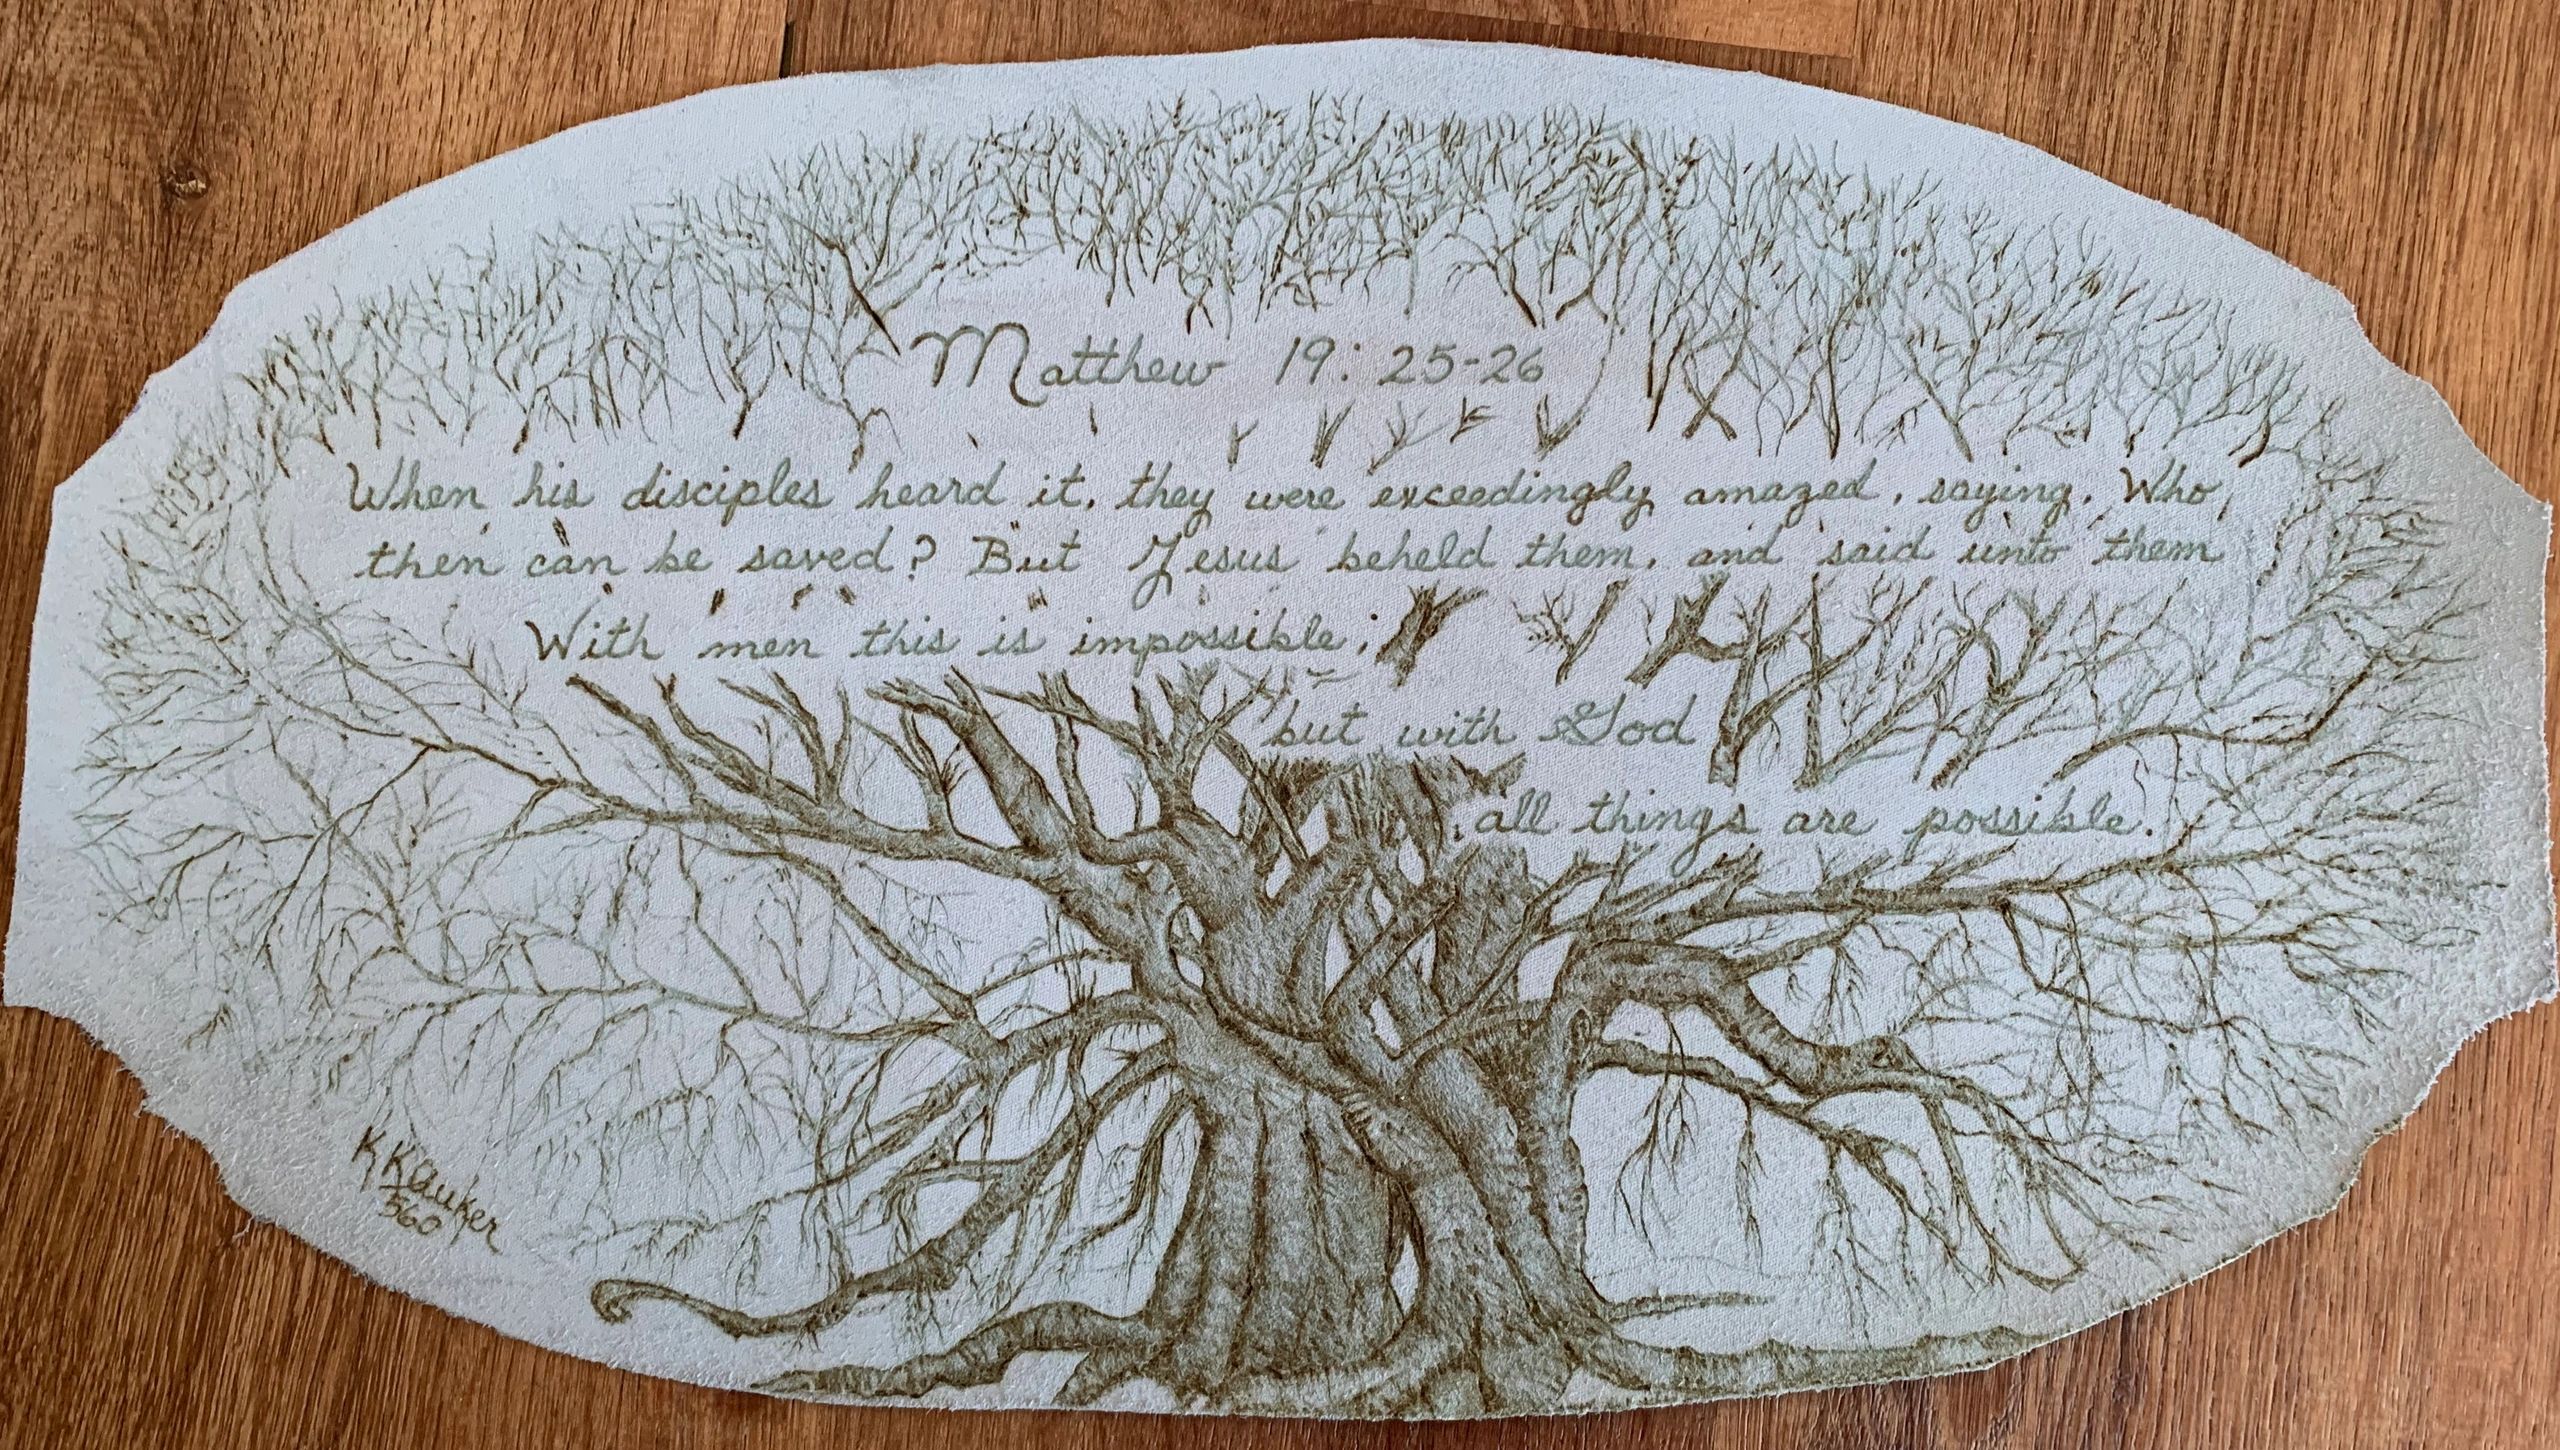 Matthew 19:25-26
When his disciples heard it, they were exceedingly amazed, saying, Who
then can be saved? But Jesus beheld them, and said unto them
With men this is impossible;
but with God
all things are possible.
K Klauker
560